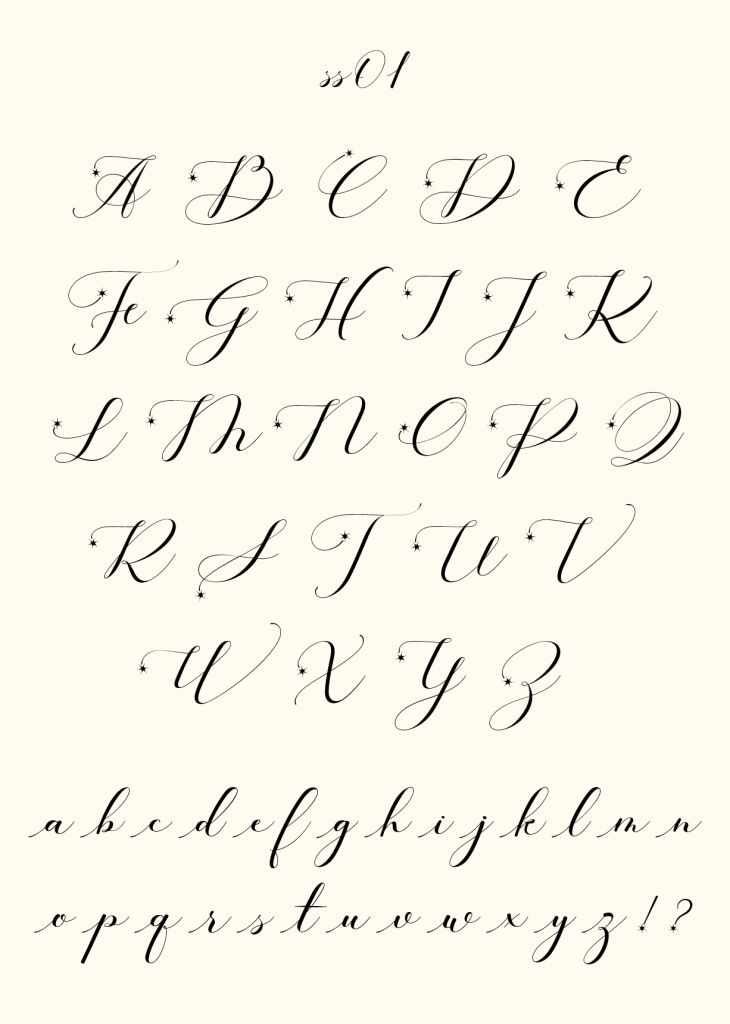 ss01
A B C D E
Fe G H I J K
L M N O P Q
R S T U V
W X Y Z
a b c d e f g h i j k l m n
o p q r s t u v w x y z ! ?